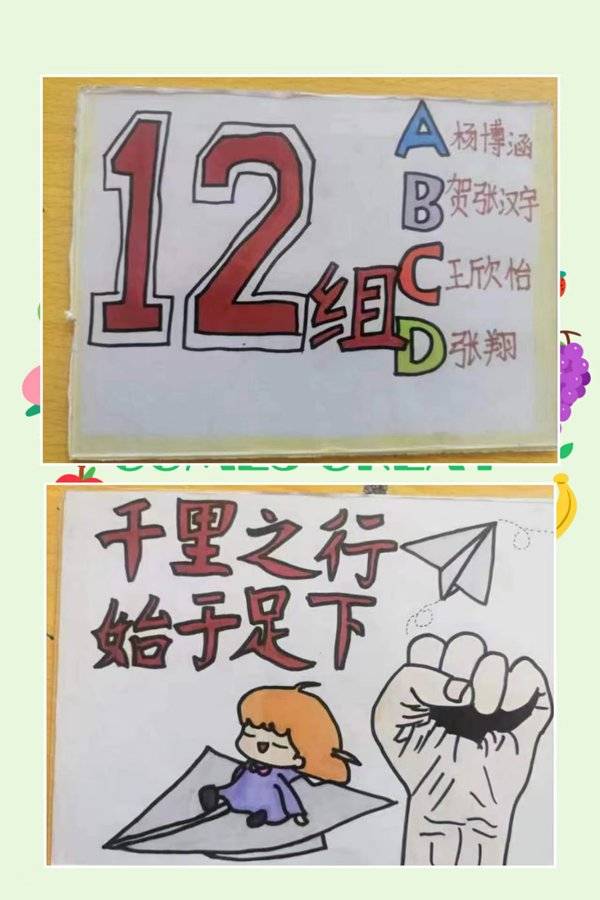 12组
A 杨博涵
B 贺张汉宇
C 王欣怡
D 张翔
千里之行
始于足下